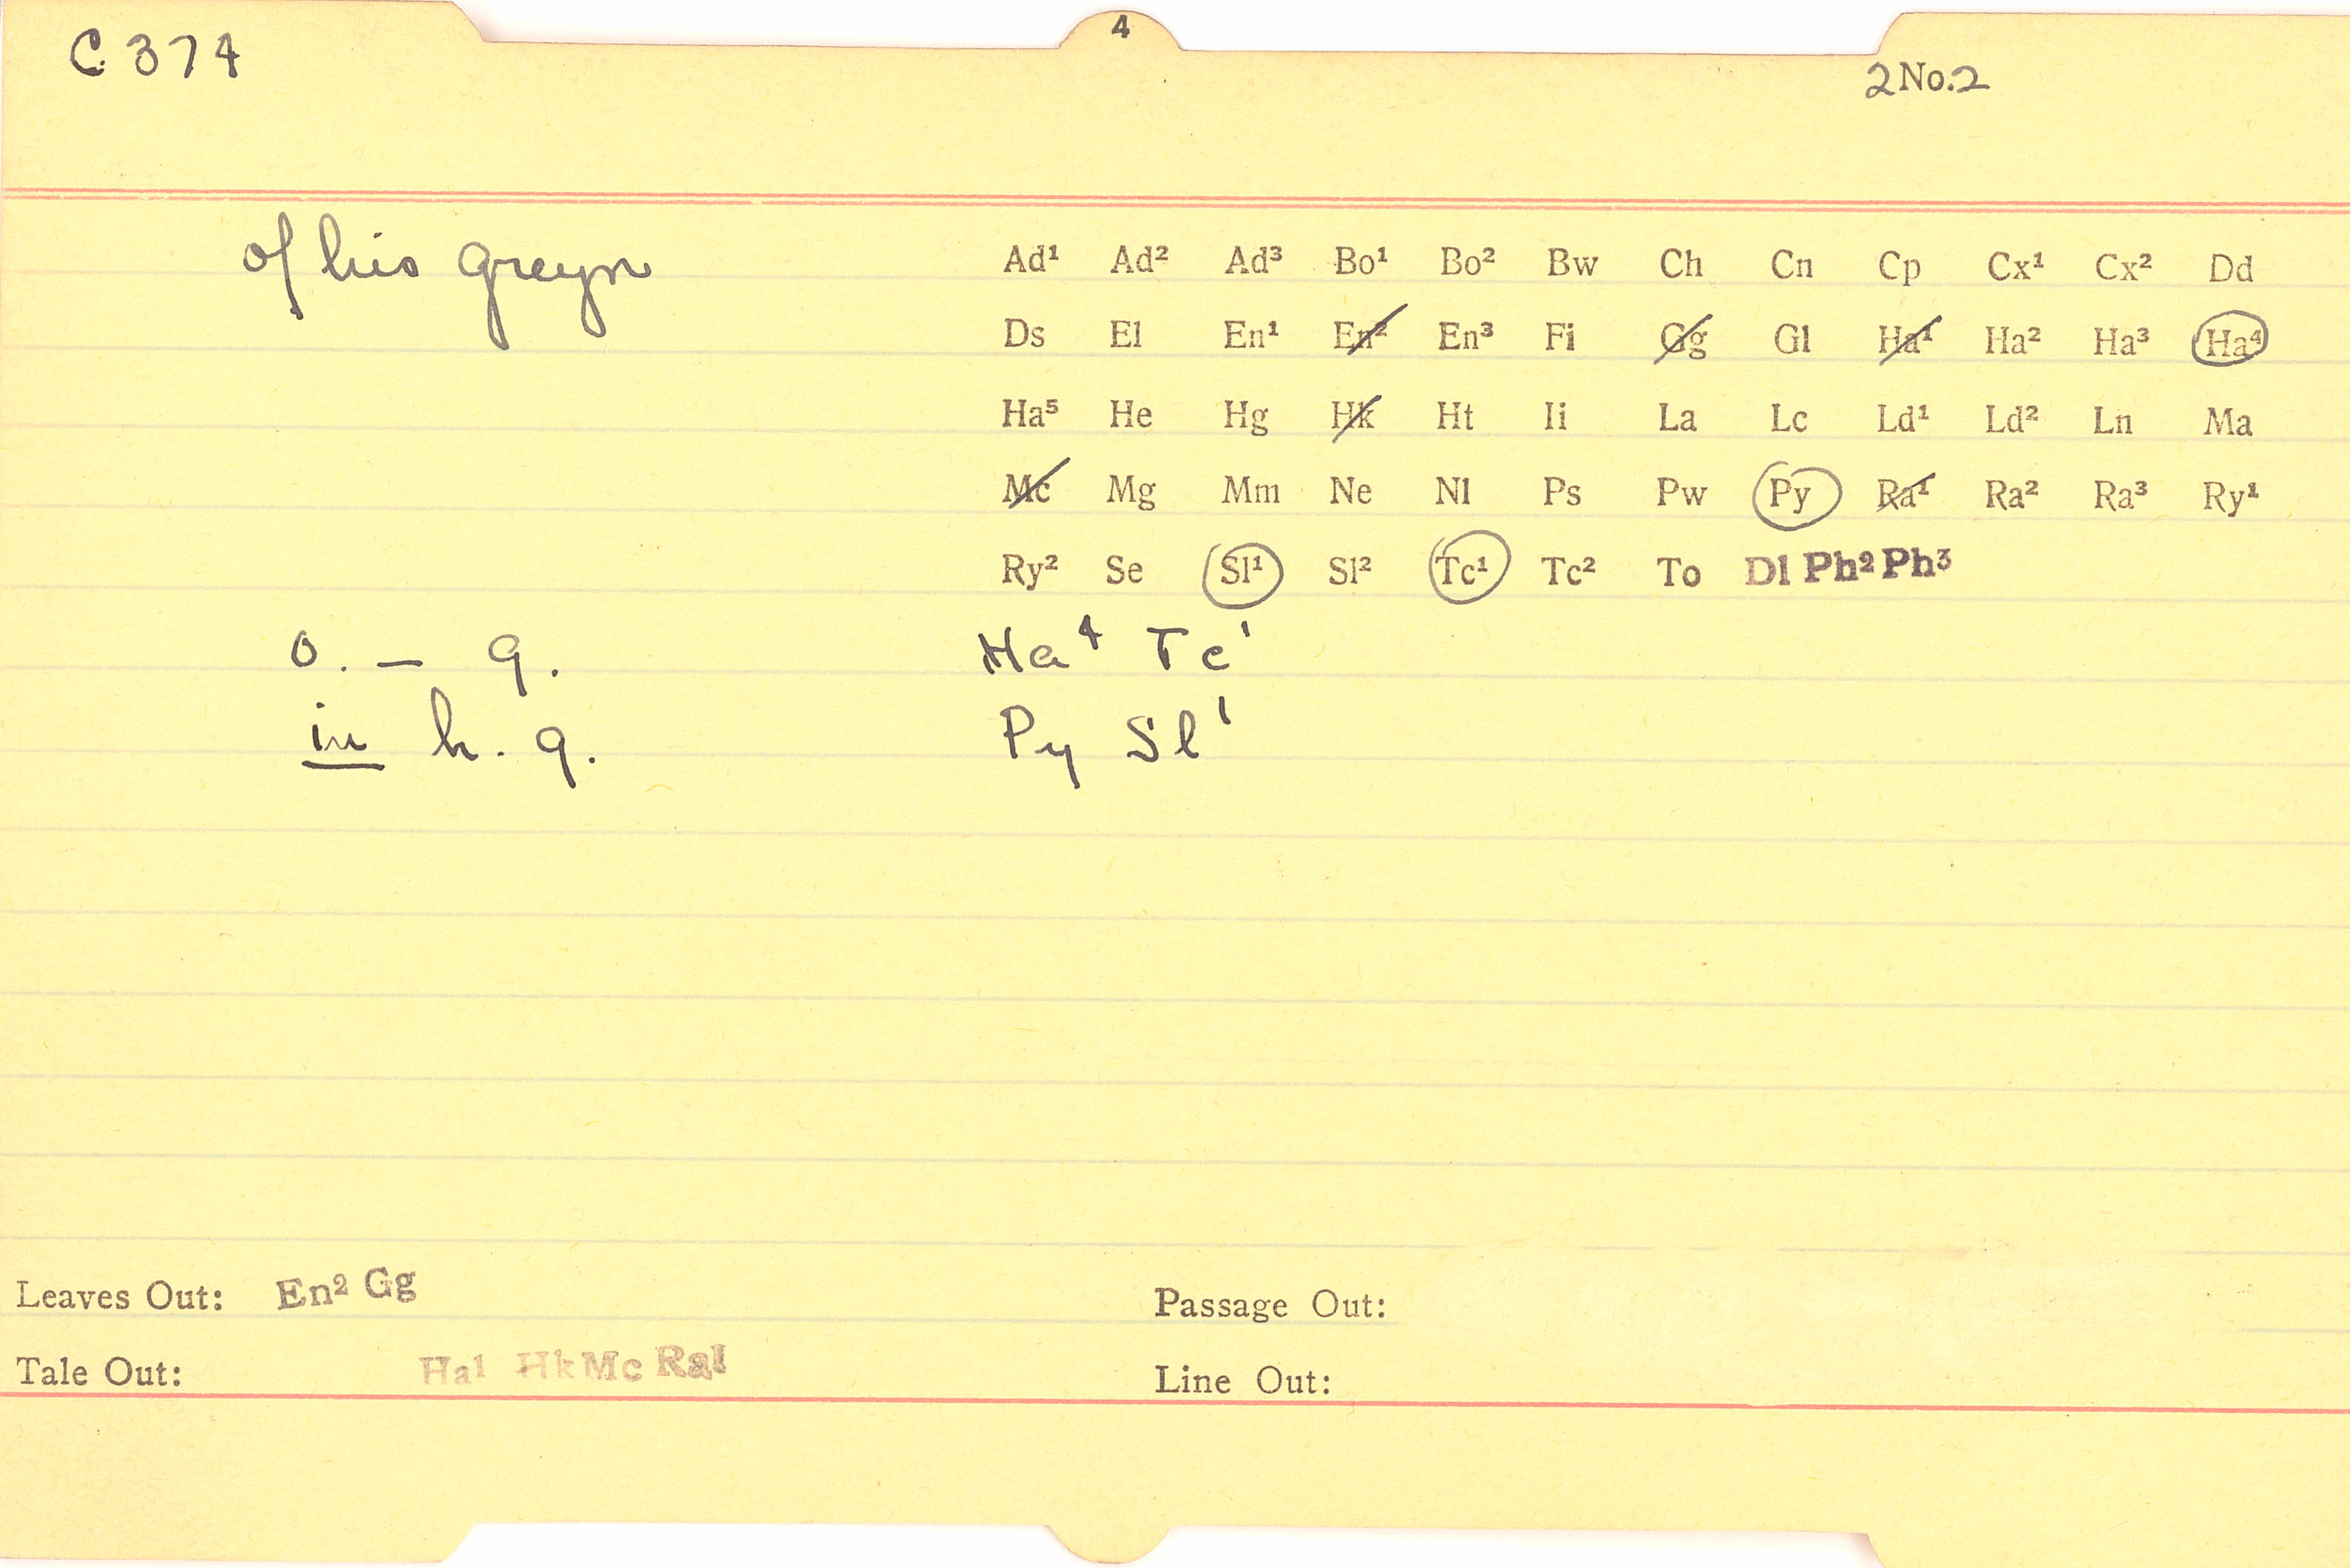 4
C 374
2No.2
of his greyn
Ad¹ Ad² Ad³ Bo¹ Bo² Bw Ch Cn Cp Cx¹ Cx² Dd
Ds El En¹ En² En³ Fi Gg Gl Ha¹ Ha² Ha³ Ha⁴
Ha⁵ He Hg Hk Ht Ii La Lc Ld¹ Ld² Ln Ma
Mc Mg Mm Ne Nl Ps Pw Py Ra¹ Ra² Ra³ Ry¹
Ry² Se Sl¹ Sl² Tc¹ Tc² To Dl Ph² Ph³
o. — g. Ha⁴ Tc¹
in h. g. Py Sl¹
Leaves Out: En² Gg
Passage Out:
Tale Out: Ha¹ Hk Mc Ra¹
Line Out: